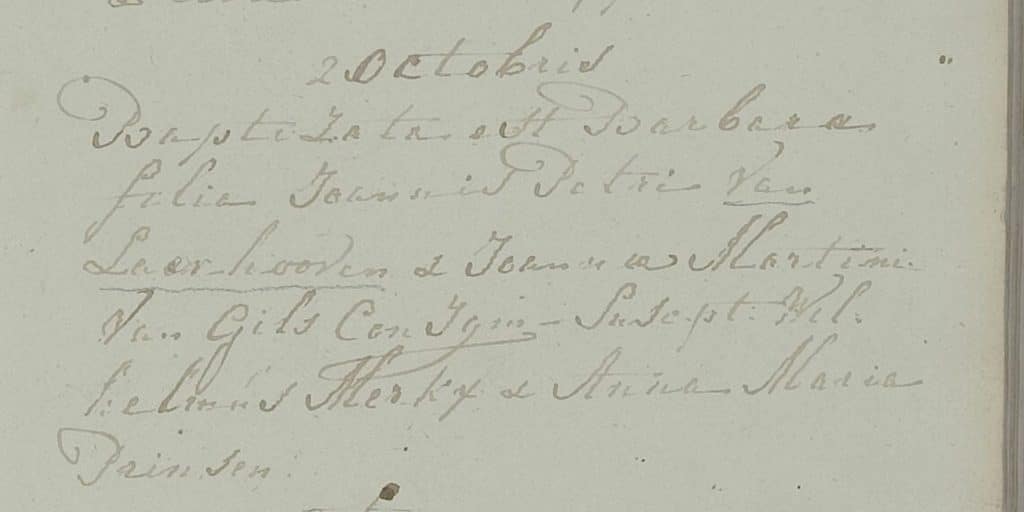 2 Octobris
Baptizata est Barbara
filia Joannis Petri Van
Laerhooven & Joanna Martini
Van Gils Con Jgm - Suscpt: Wil:
helmus Merkx & Anna Maria
Prinsen